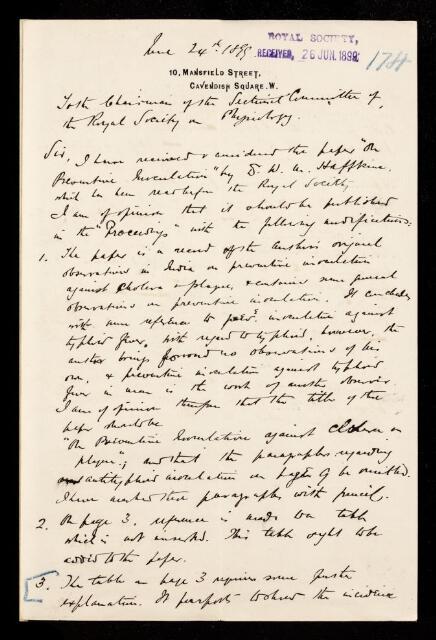 June 24th 1899
ROYAL SOCIETY,
RECEIVED, 26 JUN. 1899
174
10, MANSFIELD STREET,
CAVENDISH SQUARE. W.
To the Chairman of the Sectional Committee of
the Royal Society on Physiology.
Sir,
I have received & considered the paper "On
Preventive Inoculation" by D. W. M. Haffkine
which has been read before the Royal Society
I am of opinion that it should be published
in the "Proceedings" with the following modifications:
1. The paper is a record of the authors original
observations in India on preventive inoculation
against Cholera & plague, & contains some general
observations on preventive inoculation. It concludes
with some reference to inoculation against
typhoid fever, with regard to typhoid, however, the
author brings forward no observations of his
own, & preventive inoculation against typhoid
fever in man is the work of another observer.
I am of opinion therefore that the title of the
paper should be
"On Preventive Inoculation against Cholera or
plague"; and that the paragraphs regarding
antityphoid inoculation on page 9 be omitted.
I have marked these paragraphs with pencil.
2. On page 3, reference is made to a table
which is not inserted. This table ought to be
added to the paper.
3. The table on page 3 requires some further
explanation. It purports to show the incidence